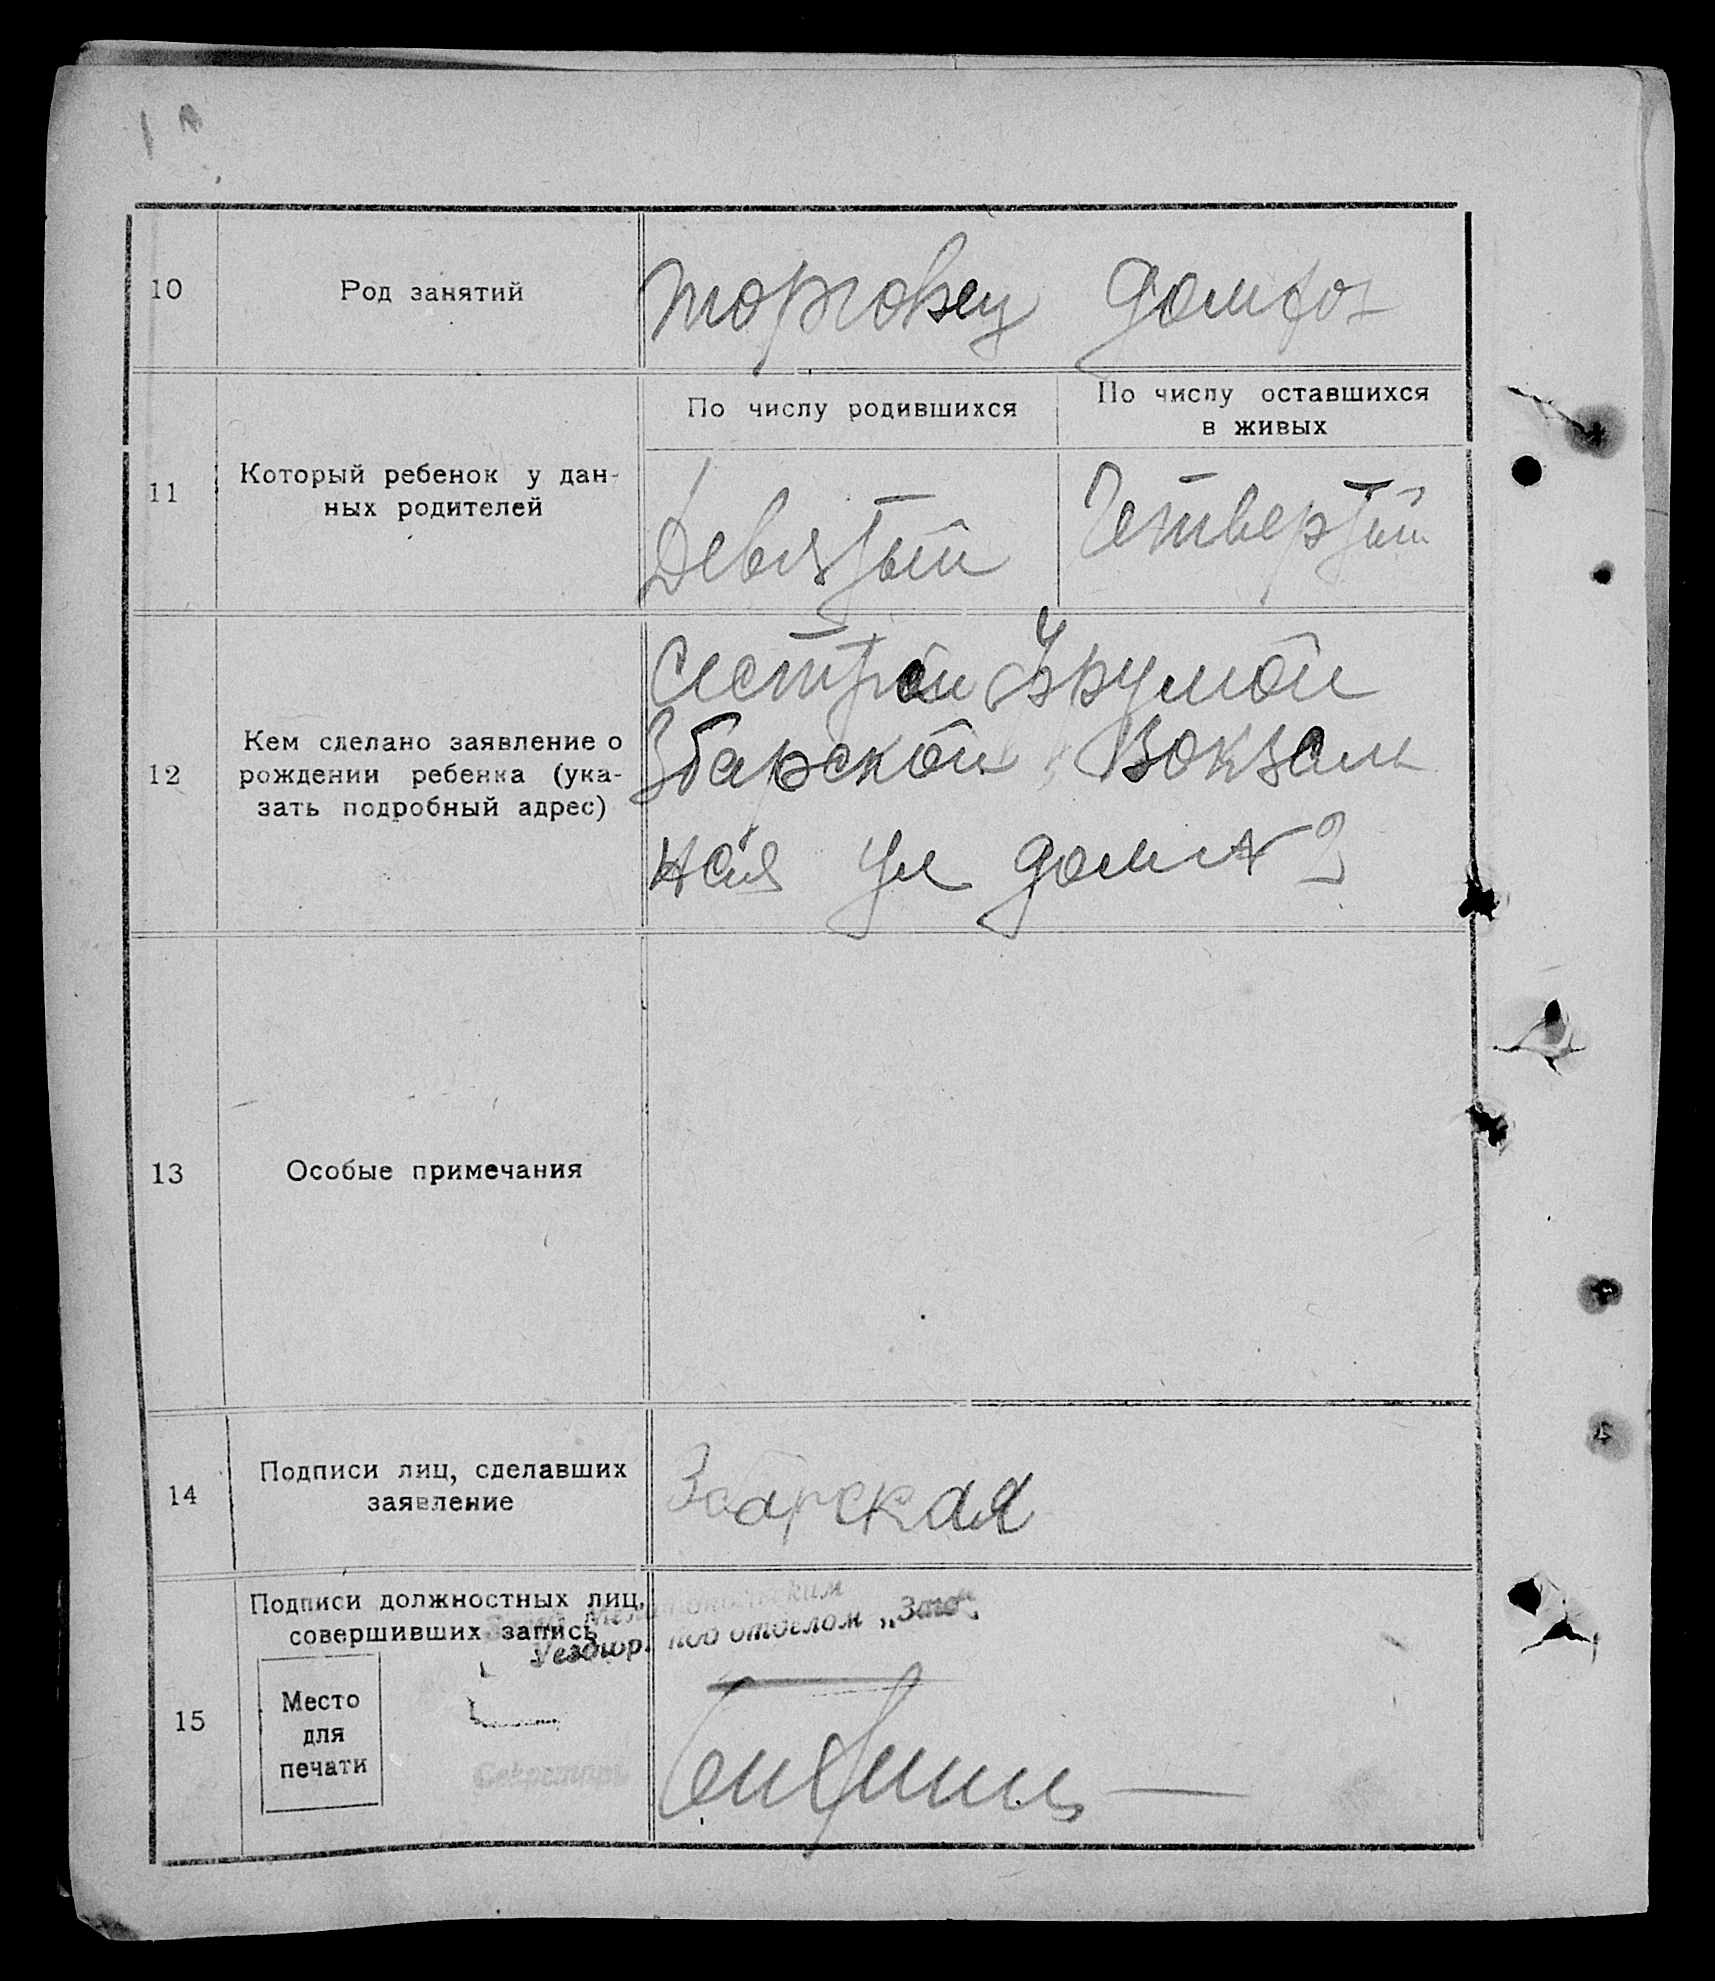 10 Род занятий торговец домхоз
По числу родившихся По числу оставшихся
в живых
11 Который ребенок у дан-
ных родителей
Девятый Четвертый
12 Кем сделано заявление о
рождении ребенка (ука-
зать подробный адрес)
Сестрой Фрумой
Збарской Вокзаль
ная ул дом №
13 Особые примечания
14 Подписи лиц, сделавших
заявление
Збарская
15 Подписи должностных лиц,
совершивших запись
Уездгор. под отделом „Загс".
Место
для
печати
Секретарь